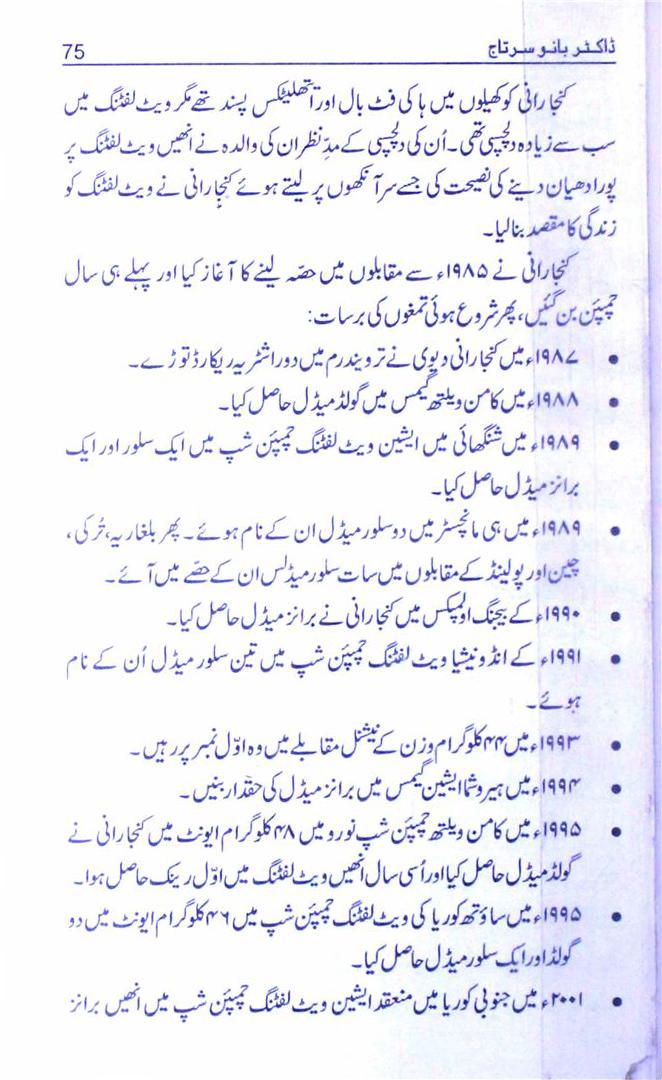 ڈاکٹر بانو سرتاج 75
کنجا رانی کو کھیلوں میں ہاکی فٹ بال اور اتھلیٹکس پسند تھے مگر ویٹ لفٹنگ میں
سب سے زیادہ دلچسپی تھی۔ اُن کی دلچسپی کے مدِّ نظر ان کی والدہ نے انھیں ویٹ لفٹنگ پر
پورا دھیان دینے کی نصیحت کی جسے سر آنکھوں پر لیتے ہوئے کنجا رانی نے ویٹ لفٹنگ کو
زندگی کا مقصد بنا لیا۔
کنجارانی نے ۱۹۸۵ء سے مقابلوں میں حصّہ لینے کا آغاز کیا اور پہلے ہی سال
چمپئن بن گئیں، پھر شروع ہوئی تمغوں کی برسات:
• ۱۹۸۷ء میں کنجارانی دیوی نے تروِیندرم میں دو راشٹریہ ریکارڈ توڑے۔
• ۱۹۸۸ء میں کامن ویلتھ گیمس میں گولڈ میڈل حاصل کیا۔
• ۱۹۸۹ء میں شنگھائی میں ایشین ویٹ لفٹنگ چمپئن شپ میں ایک سلور اور ایک
برانز میڈل حاصل کیا۔
• ۱۹۸۹ء میں ہی مانچسٹر میں دو سلور میڈل ان کے نام ہوئے۔ پھر بلغاریہ، تُرکی،
چین اور پولینڈ کے مقابلوں میں سات سلور میڈلس ان کے حصّے میں آئے۔
• ۱۹۹۰ء کے بیجنگ اولمپکس میں کنجارانی نے برانز میڈل حاصل کیا۔
• ۱۹۹۱ء کے انڈونیشیا ویٹ لفٹنگ چمپئن شپ میں تین سلور میڈل اُن کے نام
ہوئے۔
• ۱۹۹۳ء میں ۴۴ کلوگرام وزن کے نیشنل مقابلے میں وہ اوّل نمبر پر رہیں۔
• ۱۹۹۴ء میں ہیروشما ایشین گیمس میں برانز میڈل کی حقدار بنیں۔
• ۱۹۹۵ء میں کامن ویلتھ چمپئن شپ نورو میں ۴۸ کلوگرام ایونٹ میں کنجارانی نے
گولڈ میڈل حاصل کیا اور اُسی سال انھیں ویٹ لفٹنگ میں اوّل رینک حاصل ہوا۔
• ۱۹۹۵ء میں ساؤتھ کوریا کی ویٹ لفٹنگ چمپئن شپ میں ۴۶ کلوگرام ایونٹ میں دو
گولڈ اور ایک سلور میڈل حاصل کیا۔
• ۲۰۰۱ء میں جنوبی کوریا میں منعقد ایشین ویٹ لفٹنگ چمپئن شپ میں انھیں برانز